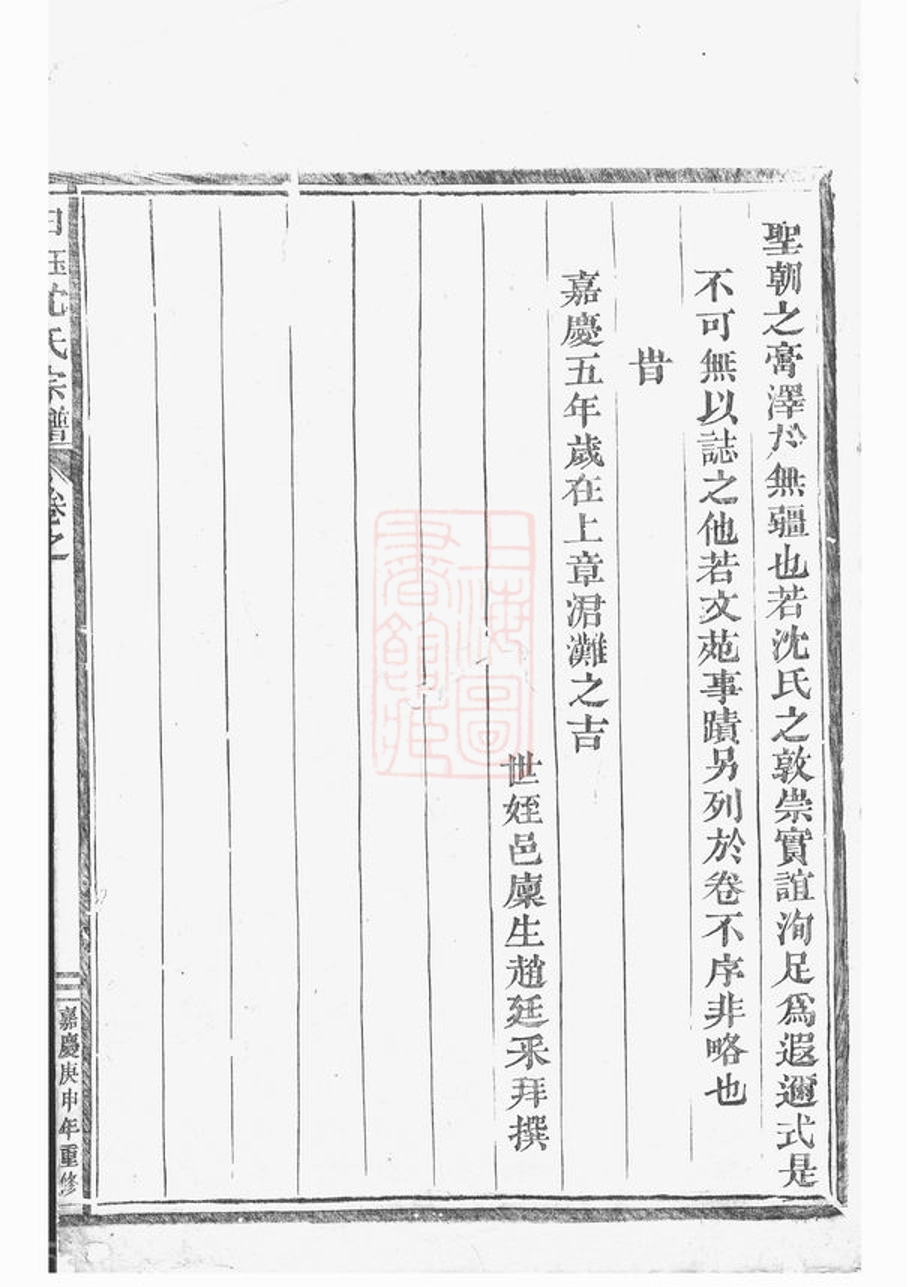 聖朝之膏澤於無疆也若沈氏之敦崇實誼洵足爲遐邇式是
不可無以誌之他若文苑事蹟另列於卷不序非略也
旹
嘉慶五年歲在上章涒灘之吉
世姪邑廩生趙廷采拜撰
沈氏宗譜
卷之一
二
嘉慶庚申年重修
上海圖書館藏